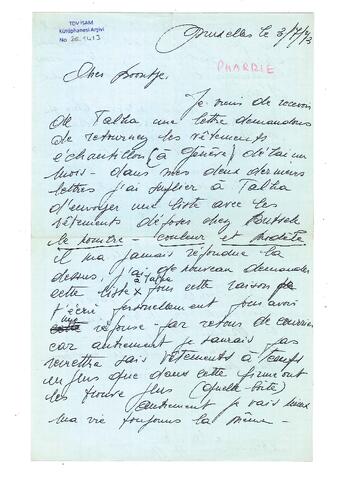 TDV İSAM
Kütüphanesi Arşivi
No 2E.1413
Bruxelles le 3/7/73
PHARRIE
Cher
Je viens de recevoir
de Talha une lettre demandons
de retourney les vêtements
échantillon (à Genève) délai un
mois - dans mes deux derniers
lettres j'ai suplier à Talha
d'envoyer une liste avec les
vêtements déposes chez
le nombre - couleur et modèle
il ma jamais répondue la
dessus, j'ai de nouveau demander
cette liste à Talha pour cette raison
t'écri personellement pour avoir
une réponse - par retour de courrier
car autrement je saurais pas
remettre sais vêtements à temps
un plus que dans cette firme ont
les trouve plus (quelle bête)
autrement je vais mieux
ma vie toujours la même -